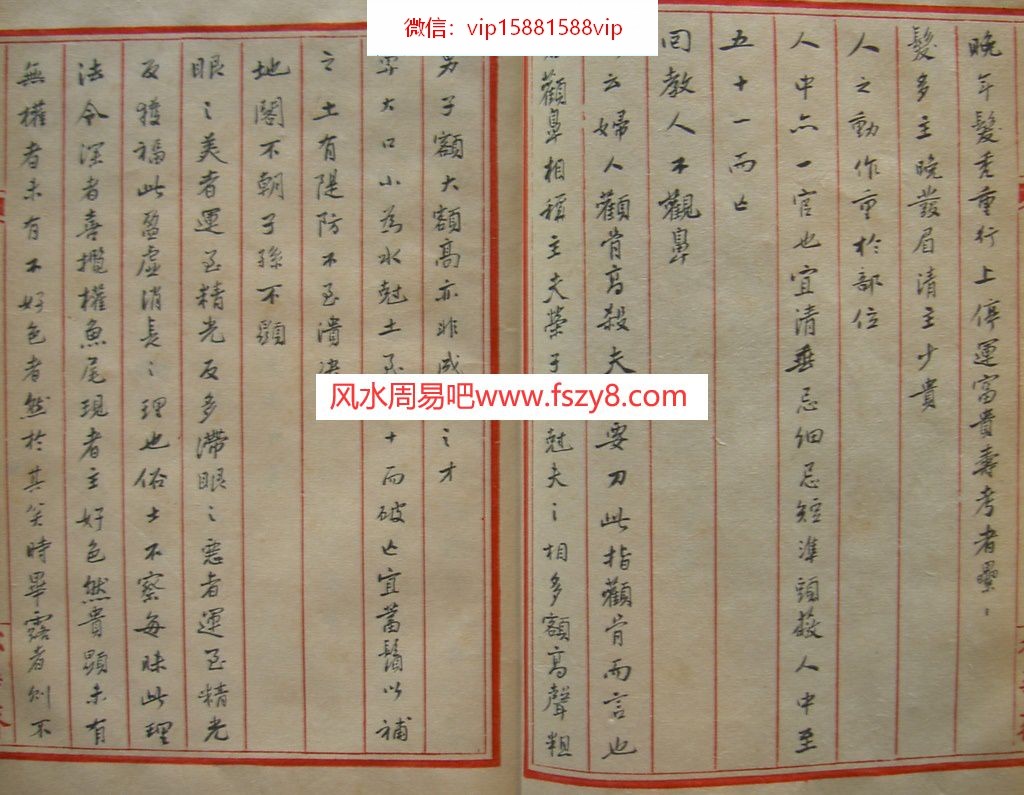 微信：vip15881588vip
风水周易吧www.fszy8.com
晚年髮禿重行上停運富貴壽考者壘〻
髮多主晚發眉清主少貴
人之動作重於部位
人中亦一官也宜清垂忌細忌短準頭蔽人中至
五十一而亡
回教人不觀鼻
云婦人顴骨高殺夫要刀此指顴骨而言也
顴鼻相稱主夫榮子尅夫〻相多額高聲粗
男子額大額高亦非之才
大口小為水尅土至十而破亡宜蓄鬚以補
之土有隄防不至潰決
地閣不朝子孫不顯
眼〻美者運至精光反多滯眼〻惡者運至精光
反獲福此盈虛消長〻理也俗士不察每昧此理
法令深者喜攬權魚尾現者主好色然貴顯未有
無權者未有不好色者然於其笑時畢露者則不